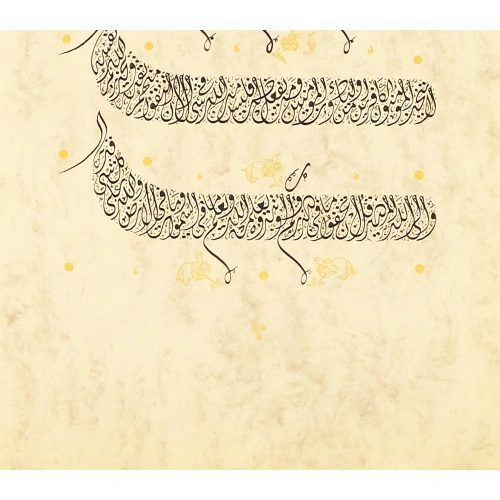 لا يتخذ المؤمنون الكافرين أولياء من دون المؤمنين ومن يفعل ذلك فليس من الله في شيء إلا أن تتقوا منهم تقاة ويحذركم الله نفسه
وإلى الله المصير قل إن تخفوا ما في صدوركم أو تبدوه يعلمه الله ويعلم ما في السموات وما في الأرض والله على كل شيء قدير